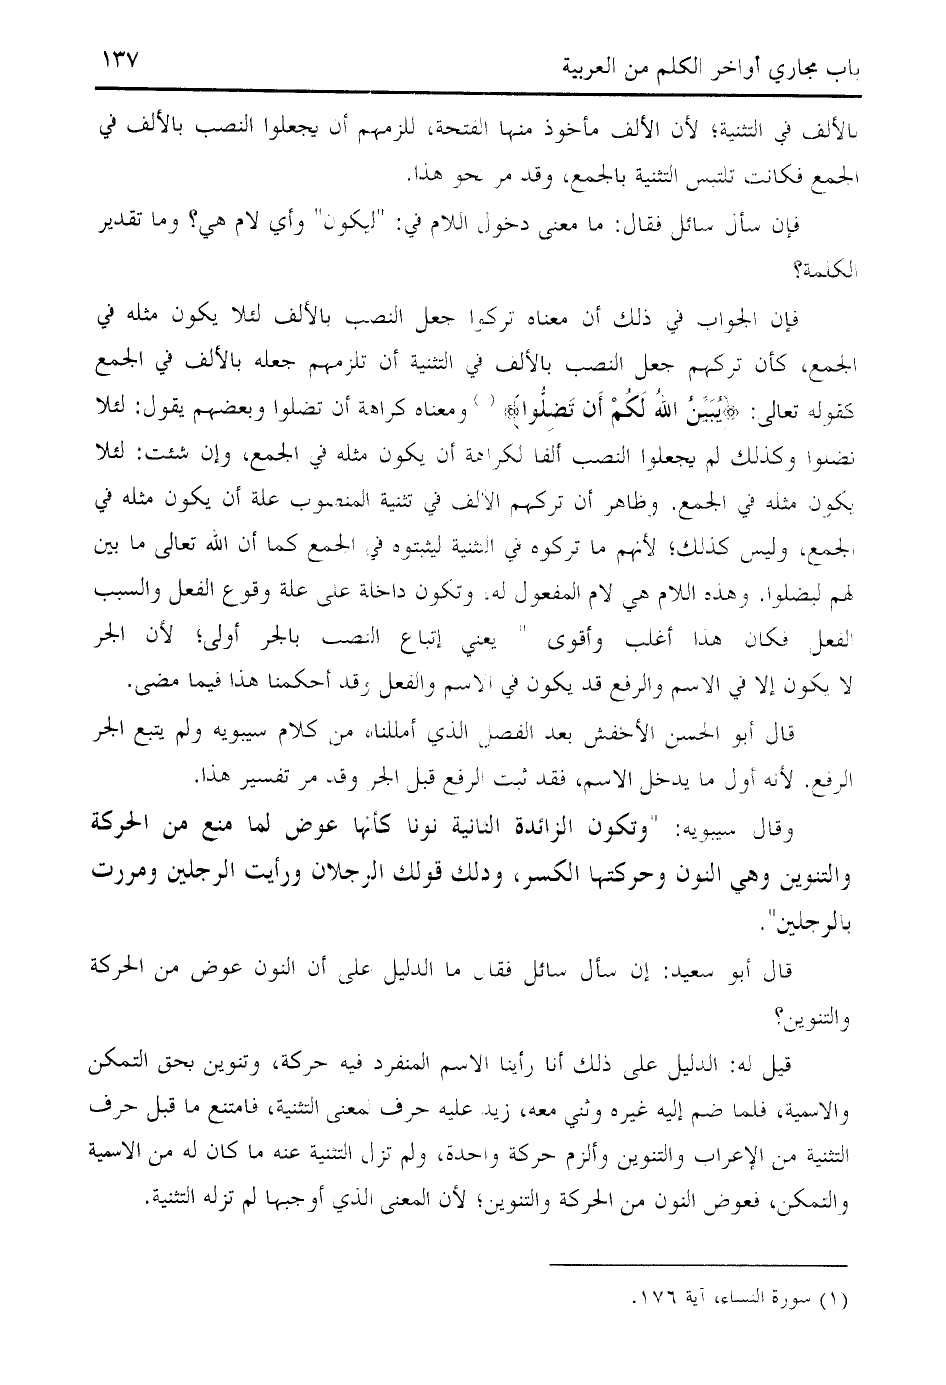 باب مجاري أواخر الكلم من العربية
١٣٧
بالألف في التثنية؛ لأن الألف مأخوذ منها الفتحة، للزمهم أن يجعلوا النصب بالألف في
الجمع فكانت تلتبس التثنية بالجمع، وقد مر نحو هذا.
فإن سأل سائل فقال: ما معنى دخول اللام في: "ليكون" وأي لام هي؟ وما تقدير
الكلمة؟
فإن الجواب في ذلك أن معناه تركوا جعل النصب بالألف لئلا يكون مثله في
الجمع، كأن تركهم جعل النصب بالألف في التثنية أن تلزمهم جعله بالألف في الجمع
كقوله تعالى: ﴿يُبَيِّنُ اللهُ لَكُمْ أَن تَضِلُّوا﴾ ( ) ومعناه كراهة أن تضلوا وبعضهم يقول: لئلا
تضلوا وكذلك لم يجعلوا النصب ألفا لكراهة أن يكون مثله في الجمع، وإن شئت: لئلا
يكون مثله في الجمع. وظاهر أن تركهم الألف في تثنية المنصوب علة أن يكون مثله في
الجمع، وليس كذلك؛ لأنهم ما تركوه في التثنية ليثبتوه في الجمع كما أن الله تعالى ما بين
لهم ليضلوا. وهذه اللام هي لام المفعول له. وتكون داخلة على علة وقوع الفعل والسبب
الفعل فكان هذا أغلب وأقوى " يعني إتباع النصب بالجر أولى؛ لأن الجر
لا يكون إلا في الاسم والرفع قد يكون في الاسم والفعل وقد أحكمنا هذا فيما مضى.
قال أبو الحسن الأخفش بعد الفصل الذي أمللناه من كلام سيبويه ولم يتبع الجر
الرفع. لأنه أول ما يدخل الاسم، فقد ثبت الرفع قبل الجر وقد مر تفسير هذا.
وقال سيبويه: "وتكون الزائدة الثانية نونا كأنها عوض لما منع من الحركة
والتنوين وهي النون وحركتها الكسر، وذلك قولك الرجلان ورأيت الرجلين ومررت
بالرجلين".
قال أبو سعيد: إن سأل سائل فقال ما الدليل على أن النون عوض من الحركة
والتنوين؟
قيل له: الدليل على ذلك أنا رأينا الاسم المنفرد فيه حركة، وتنوين بحق التمكن
والاسمية، فلما ضم إليه غيره وثني معه، زيد عليه حرف لمعنى التثنية، فامتنع ما قبل حرف
التثنية من الإعراب والتنوين وألزم حركة واحدة، ولم تزل التثنية عنه ما كان له من الاسمية
والتمكن، فعوض النون من الحركة والتنوين؛ لأن المعنى الذي أوجبها لم تزله التثنية.
(١) سورة النساء، آية ١٧٦.